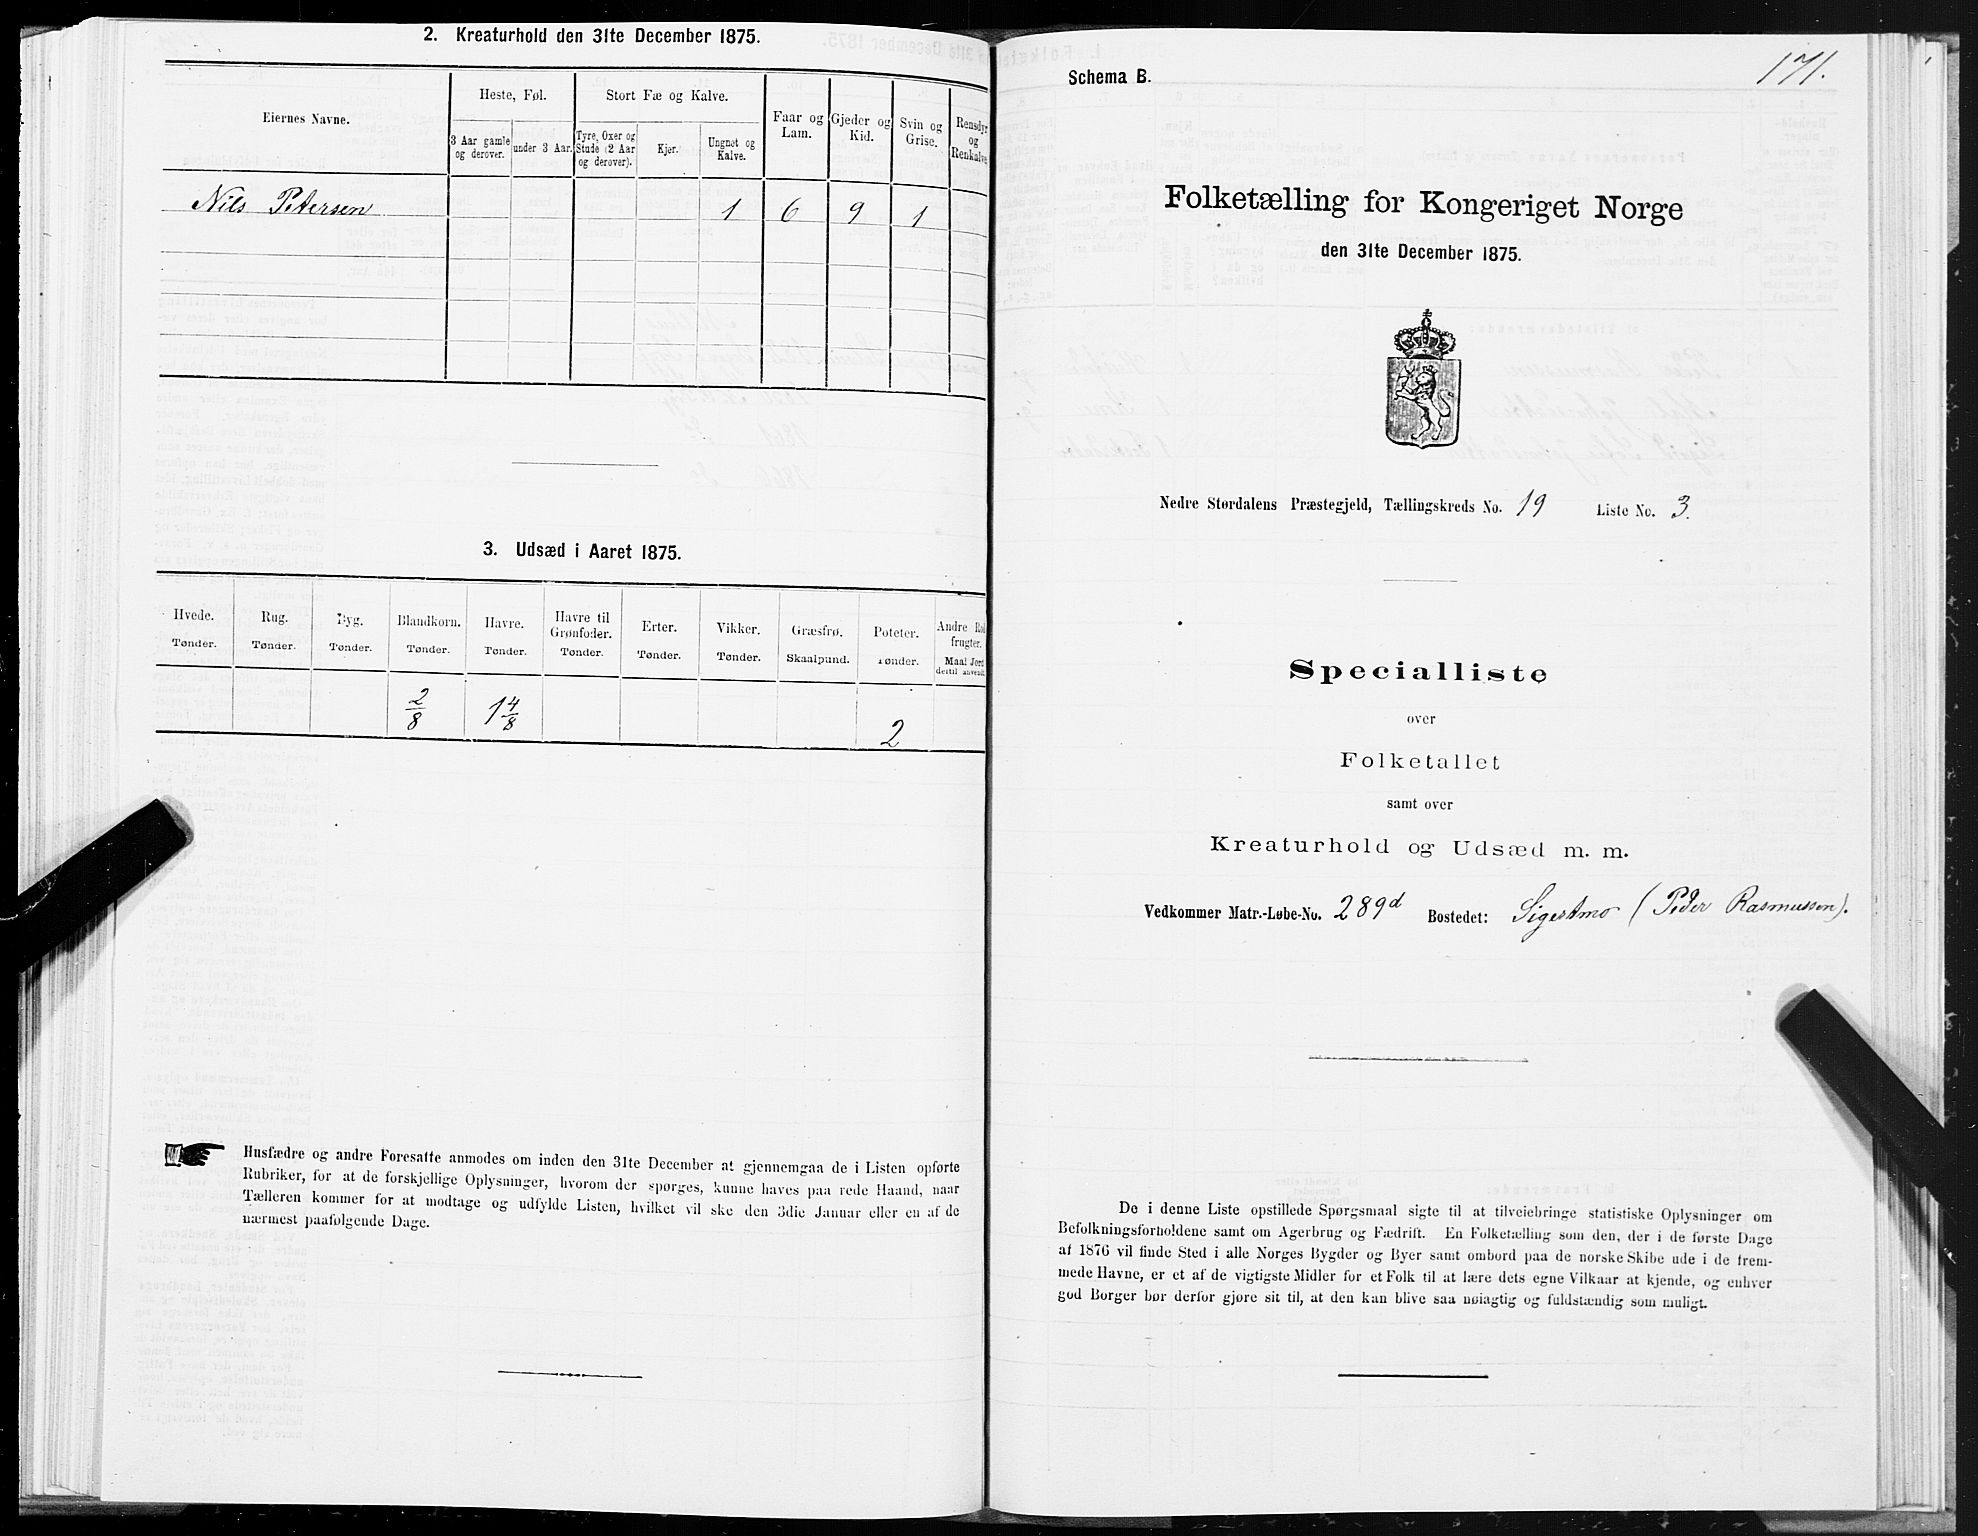 2. Kreaturhold den 31te December 1875.
Eiernes Navne.
Heste, Føl.
Stort Fæ og Kalve.
Faar og Lam.
Gjeder og Kid.
Svin og Grise.
Rensdyr og Renkalve
3 Aar gamle og derover.
under 3 Aar.
Tyre, Oxer og Stude (2 Aar og derover).
Kjer.
Ungnøt og Kalve.
Nils Petersen 1 6 9 1
3. Udsæd i Aaret 1875.
Hvede. Rug. Byg. Blandkorn. Havre. Havre til Grønfoder. Erter. Vikker. Græsfrø. Poteter. Andre Rod frugter.
Tønder. Tønder. Tønder. Tønder. Tønder. Tønder. Tønder. Tønder. Skaalpund. Tønder. Maal Jord dertil anvendt
2/8 1 4/8 2
Husfædre og andre Foresatte anmodes om inden den 31te December at gjennemgaa de i Listen opførte
Rubriker, for at de forskjellige Oplysninger, hvorom der spørges, kunne haves paa rede Haand, naar
Tælleren kommer for at modtage og udfylde Listen, hvilket vil ske den 3die Januar eller en af de
nærmest paafølgende Dage.
171.
Schema B.
Folketælling for Kongeriget Norge
den 31te December 1875.
Nedre Størdalens Præstegjeld, Tællingskreds No. 19 Liste No. 3.
Specialliste
over
Folketallet
samt over
Kreaturhold og Udsæd m. m.
Vedkommer Matr.-Løbe-No. 289d Bostedet: Sigestmo (Peder Rasmussen).
De i denne Liste opstillede Spørgsmaal sigte til at tilveiebringe statistiske Oplysninger om
Befolkningsforholdene samt om Agerbrug og Fædrift. En Folketælling som den, der i de første Dage
af 1876 vil finde Sted i alle Norges Bygder og Byer samt ombord paa de norske Skibe ude i de frem-
mede Havne, er et af de vigtigste Midler for et Folk til at lære dets egne Vilkaar at kjende, og enhver
god Borger bør derfor gjøre sit til, at den kan blive saa nøiagtig og fuldstændig som muligt.